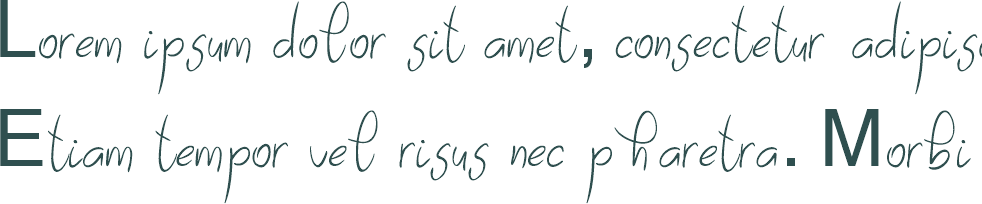 Lorem ipsum dolor sit amet, consectetur adipisc
Etiam tempor vel risus nec pharetra. Morbi